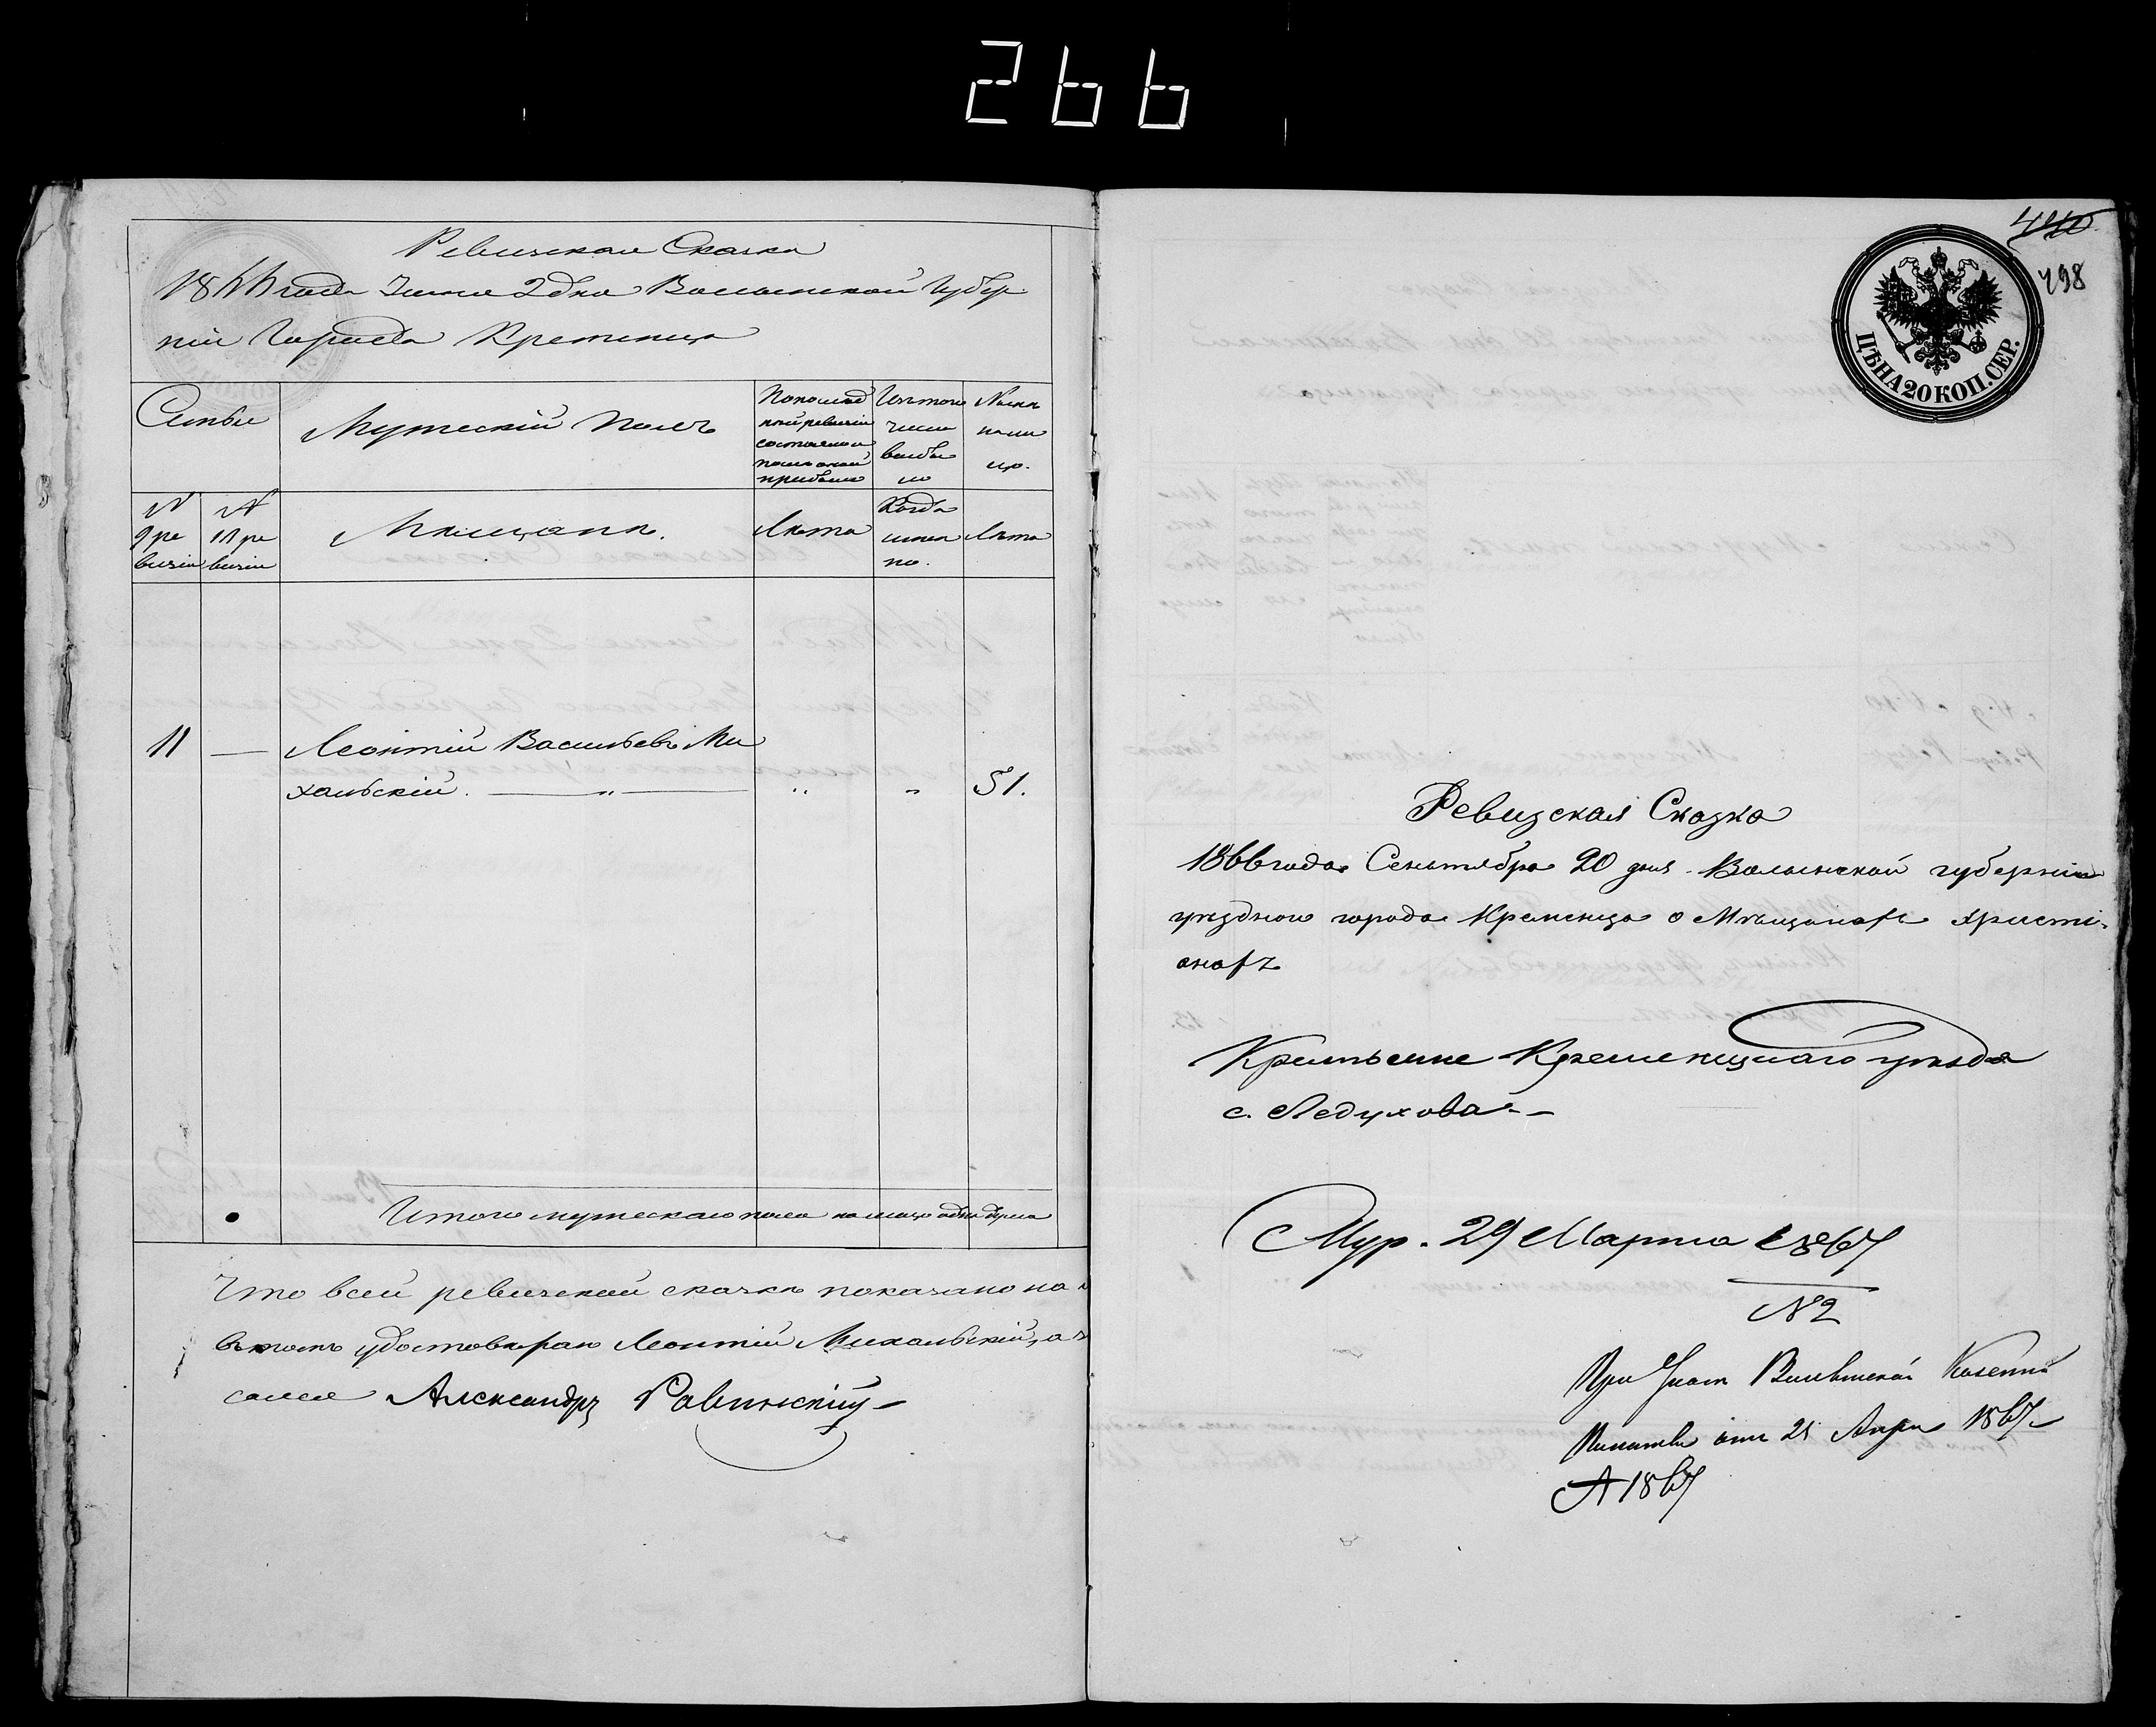 266
Ревизская Сказка
1866 года Июня 2 дня Волынской Губер
ніи Города Кременца
Семьи
Мужескій полъ
По послед
ней ревизіи
состояло и
после оной
прибыло
Изъ того
числа
выбы
ло
Ныне
на ли
цо.
№
9 ре
визіи
№
10 ре
визіи
Мѣщане.
Лѣта
Когда
имен
но.
Лѣта
11 — Леонтій Васильевъ Ми
хальскій. — „ — „ „ 51.
Итого мужескаго пола на лицо одна душа
Что в сей ревизской сказкѣ показано
въ томъ удостоверяю Леонтій Михальскій, а
Александръ Равинскій
440
498
ЦѢНА 20 КОП. СЕР.
Ревизская Сказка
1866 года Сентября 20 дня Волынской губерніи
уѣзднаго города Кременца о Мѣщанахъ христі-
анахъ
Кременецкаго уѣзда
с. Ледухова
Жур. 29 Марта 1867
№ 2
При Указѣ Волынской Казенной
Палаты отъ 21 Апрѣ 1867
№ 1867